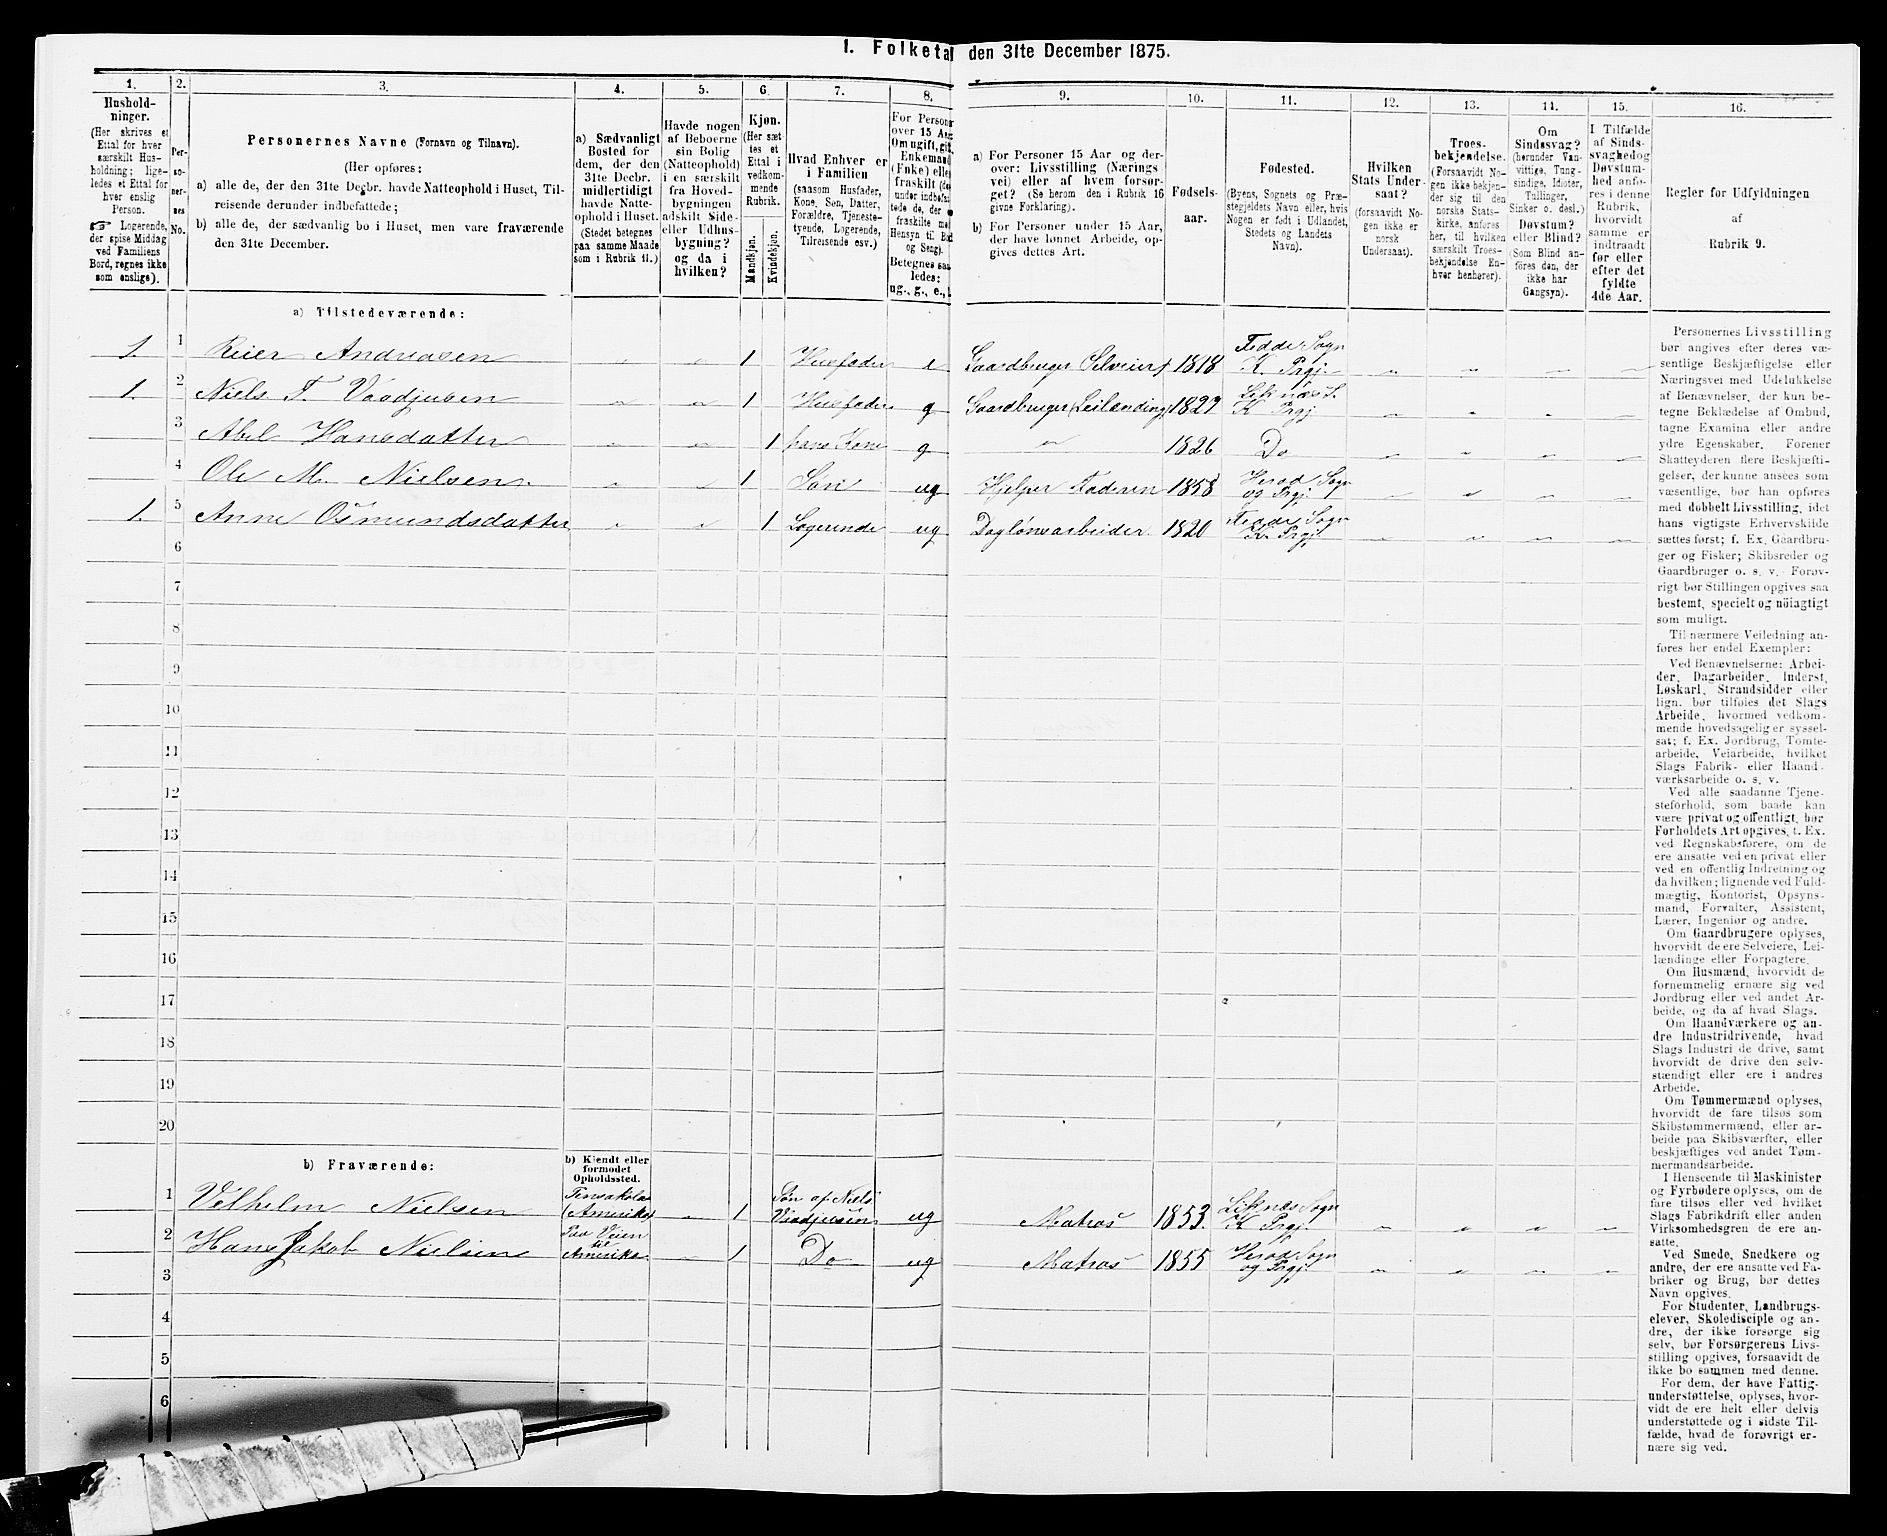 1. Folketal den 31te December 1875.
1.
Hushold-
ninger.
(Her skrives et
Ettal for hver
særskilt Hus-
holdning; lige-
ledes et Ettal for
hver enslig
Person.
☞ Logerende,
der spise Middag
ved Familiens
Bord, regnes ikke
som enslige).
2.
Per-
so-
ner-
nes
No.
3.
Personernes Navne (Fornavn og Tilnavn).
(Her opføres:
a) alle de, der den 31te Decbr. havde Natteophold i Huset, Til-
reisende derunder indbefattede;
b) alle de, der sædvanlig bo i Huset, men vare fraværende
den 31te December.
4.
a) Sædvanligt
Bosted for
dem, der den
31te Decbr.
midlertidigt
havde Natte-
ophold i Huset.
(Stedet betegnes
paa samme Maade
som i Rubrik 11.)
5.
Havde nogen
af Beboerne
sin Bolig
(Natteophold)
i en særskilt
fra Hoved-
bygningen
adskilt Side-
eller Udhus-
bygning?
og da i
hvilken?
6.
Kjøn.
(Her sæt
tes et
Ettal i
vedkom-
mende
Rubrik.
Mandkjøn.
Kvindekjøn.
7.
Hvad Enhver er
i Familien
(saasom Husfader,
Kone, Søn, Datter,
Forældre, Tjeneste-
tyende, Logerende,
Tilreisende osv.)
8.
For Person
over 15 Aar
Om ugift, gift
Enkemand
(Enke) eller
fraskilt (de
under indbefat
tede de, der
fraskilte med
Hensyn til Bo
og Seng).
Betegnes saa
ledes:
ug., g., e.,
9.
a) For Personer 15 Aar og der-
over: Livsstilling (Nærings-
vei) eller af hvem forsør-
get? (Se herom den i Rubrik 16
givne Forklaring).
b) For Personer under 15 Aar,
der have lønnet Arbeide, op-
gives dettes Art.
10.
Fødsels-
aar.
11.
Fødested.
(Byens, Sognets og Præ-
stegjeldets Navn eller, hvis
Nogen er født i Udlandet,
Stedets og Landets
Navn).
12.
Hvilken
Stats Under-
saat?
(forsaavidt No-
gen ikke er
norsk
Undersaat).
13.
Troes-
bekjendelse.
(Forsaavidt No-
gen ikke bekjen-
der sig til den
norske Stats-
kirke, anføres
her, til hvilken
særskilt Troes-
bekjendelse En-
hver henhører).
14.
Om
Sindssvag?
(herunder Van-
vittige, Tung-
sindige, Idioter,
Tullinger,
Sinker o. desl.)
Døvstum?
eller Blind?
(Som Blind an-
føres den, der
ikke har
Gangsyn).
15.
I Tilfælde
af Sinds-
svaghed og
Døvstum-
hed anfø-
res i denne
Rubrik,
hvorvidt
samme er
indtraadt
før eller
efter det
fyldte
4de Aar.
16.
Regler for Udfyldningen
af
Rubrik 9.
a) Tilstedeværende:
1. 1 Reier Andreasen „ „ 1 Husfader e Gaardbruger Selveier 1818 Fedde Sogn K. Prgj. „ „ „ „
1. 2 Niels T. Vaadjusen „ „ 1 Husfader g Gaardbruger (Leilænding) 1827 Liknæs S. K Prgj „ „ „ „
3 Abel Hansdatter „ „ 1 hans Kone g „ 1826 Do „ „ „ „
4 Ole M. Nielsen „ „ 1 Søn ug Hjelper Faderen 1858 Herad Sogn og Prgj. „ „ „ „
1. 5 Anne Osmundsdatter „ „ 1 Logerende ug Daglønsarbeider 1820 Fedde Sogn K. Prgj „ „ „ „
6
7
8
9
10
11
12
13
14
15
16
17
18
19
20
b) Fraværende:
b) Kjendt eller
formodet
Opholdssted.
1 Velhelm Nielsen Pensakola (Amerika) „ 1 Søn af Niels Vaadjusen ug Matros 1853 Liknæs Sogn K Prgj „ „ „ „
2 Hans Jakob Nielsen Paa Veien til Amerika „ 1 Do ug Matros 1855 Herad Sogn og Prgj. „ „ „ „
3
4
5
6
Personernes Livsstilling
bør angives efter deres væ-
sentlige Beskjæftigelse eller
Næringsvei med Udelukkelse
af Benævnelser, der kun be-
tegne Beklædelse af Ombud,
tagne Examina eller andre
ydre Egenskaber. Forener
Skatteyderen flere Beskjæfti-
gelser, der kunne ansees som
væsentlige, bør han opføres
med dobbelt Livsstilling, idet
hans vigtigste Erhvervskilde
sættes først; f. Ex. Gaardbru-
ger og Fisker; Skibsreder og
Gaardbruger o. s. v. Forøv-
rigt bør Stillingen opgives saa
bestemt, specielt og nöiagtigt
som muligt.
Til nærmere Veiledning an-
føres her endel Exempler:
Ved Benævnelserne: Arbei-
der, Dagarbeider, Inderst,
Løskarl, Strandsidder eller
lign. bør tilføies det Slags
Arbeide, hvormed vedkom-
mende hovedsagelig er syssel-
sat; f. Ex. Jordbrug, Tomte-
arbeide, Veiarbeide, hvilket
Slags Fabrik- eller Haand-
værksarbeide o. s. v.
Ved alle saadanne Tjene-
steforhold, som baade kan
være privat og offentligt, bør
Forholdets Art opgives, t. Ex.
ved Regnskabsførere, om de
ere ansatte ved en privat eller
ved en offentlig Indretning og
da hvilken; lignende ved Fuld-
mægtig, Kontorist, Opsyns-
mand, Forvalter, Assistent,
Lærer, Ingeniør og andre.
Om Gaardbrugere oplyses,
hvorvidt de ere Selveiere, Lei-
lændinge eller Forpagtere.
Om Husmænd, hvorvidt de
fornemmelig ernære sig ved
Jordbrug eller ved andet Ar-
beide, og da af hvad Slags.
Om Haandværkere og an-
dre Industridrivende, hvad
Slags Industri de drive, samt
hvorvidt de drive den selv-
stændigt eller ere i andres
Arbeide.
Om Tømmermænd oplyses,
hvorvidt de fare tilsøs som
Skibstømmermænd, eller ar-
beide paa Skibsværfter, eller
beskjæftiges ved andet Tøm-
mermandsarbeide.
I Henseende til Maskinister
og Fyrbødere oplyses, om de
fare tilsøs eller ved hvilket
Slags Fabrikdrift eller anden
Virksomhedsgren de ere an-
satte.
Ved Smede, Snedkere og
andre, der ere ansatte ved Fa-
briker og Brug, bør dettes
Navn opgives.
For Studenter, Landbrugs-
elever, Skoledisciple og an-
dre, der ikke forsørge sig
selv, bør Forsørgerens Livs-
stilling opgives, forsaavidt de
ikke bo sammen med denne.
For dem, der have Fattig-
understøttelse, oplyses, hvor-
vidt de ere helt eller delvis
understøttede og i sidste Til-
fælde, hvad de forøvrigt er-
nære sig ved.